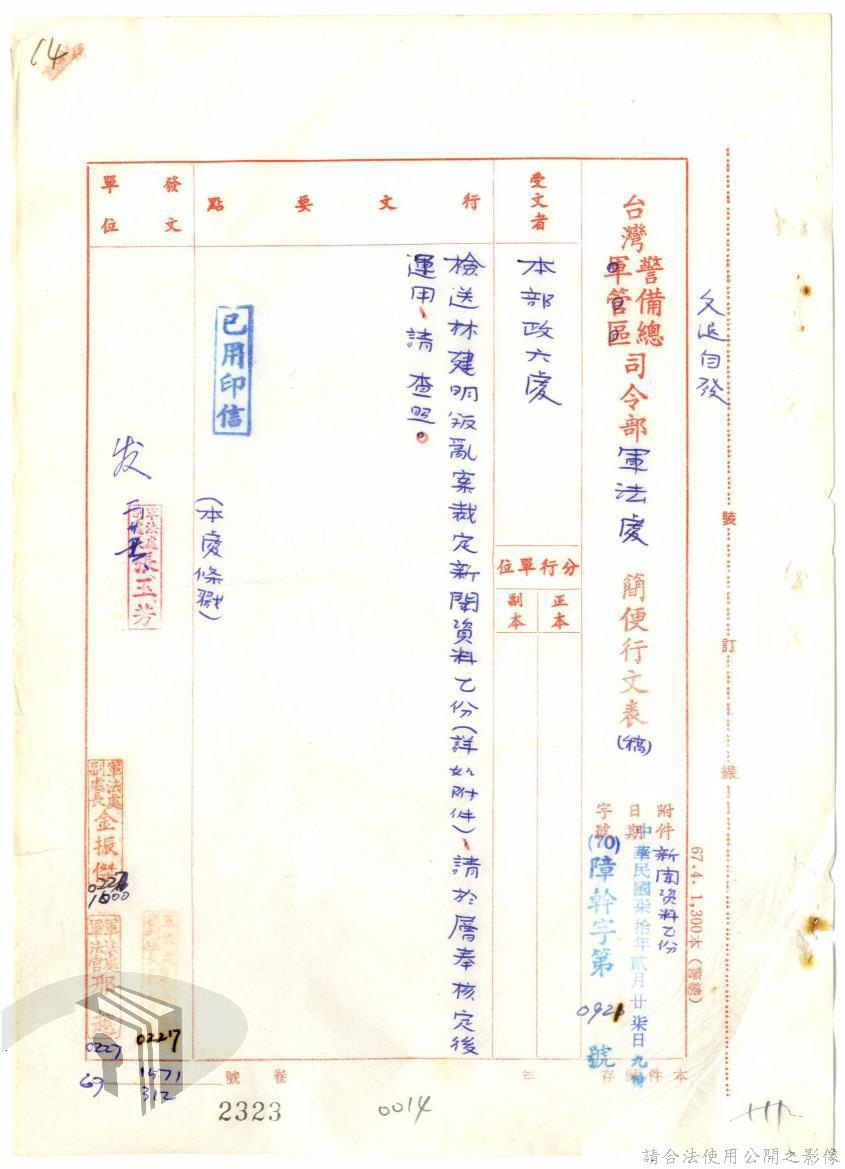 14
文退自發
裝
訂
線
67.4. 1,300本(警總)
台灣警備總軍管區司令部軍法處 簡便行文表(稿)
附件 新聞資料乙份
日期 中華民國柒拾年貳月廿柒日九時
字號 (70)障幹字第 0921 號
受文者
本部政六處
分行單位
正本
副本
行文要點
檢送林建明叛亂案裁定新聞資料乙份(詳如附件)、請於層奉核定後
運用、請 查照。
已用印信
(本處條戳)
發文
單位
发
張玉芳
軍法處
副處長
金振傑
0227
1600
軍法處
軍法官
邢
0227
02217
1571
312
本件保存 年 卷 號
2323
0014
請合法使用公開之影像